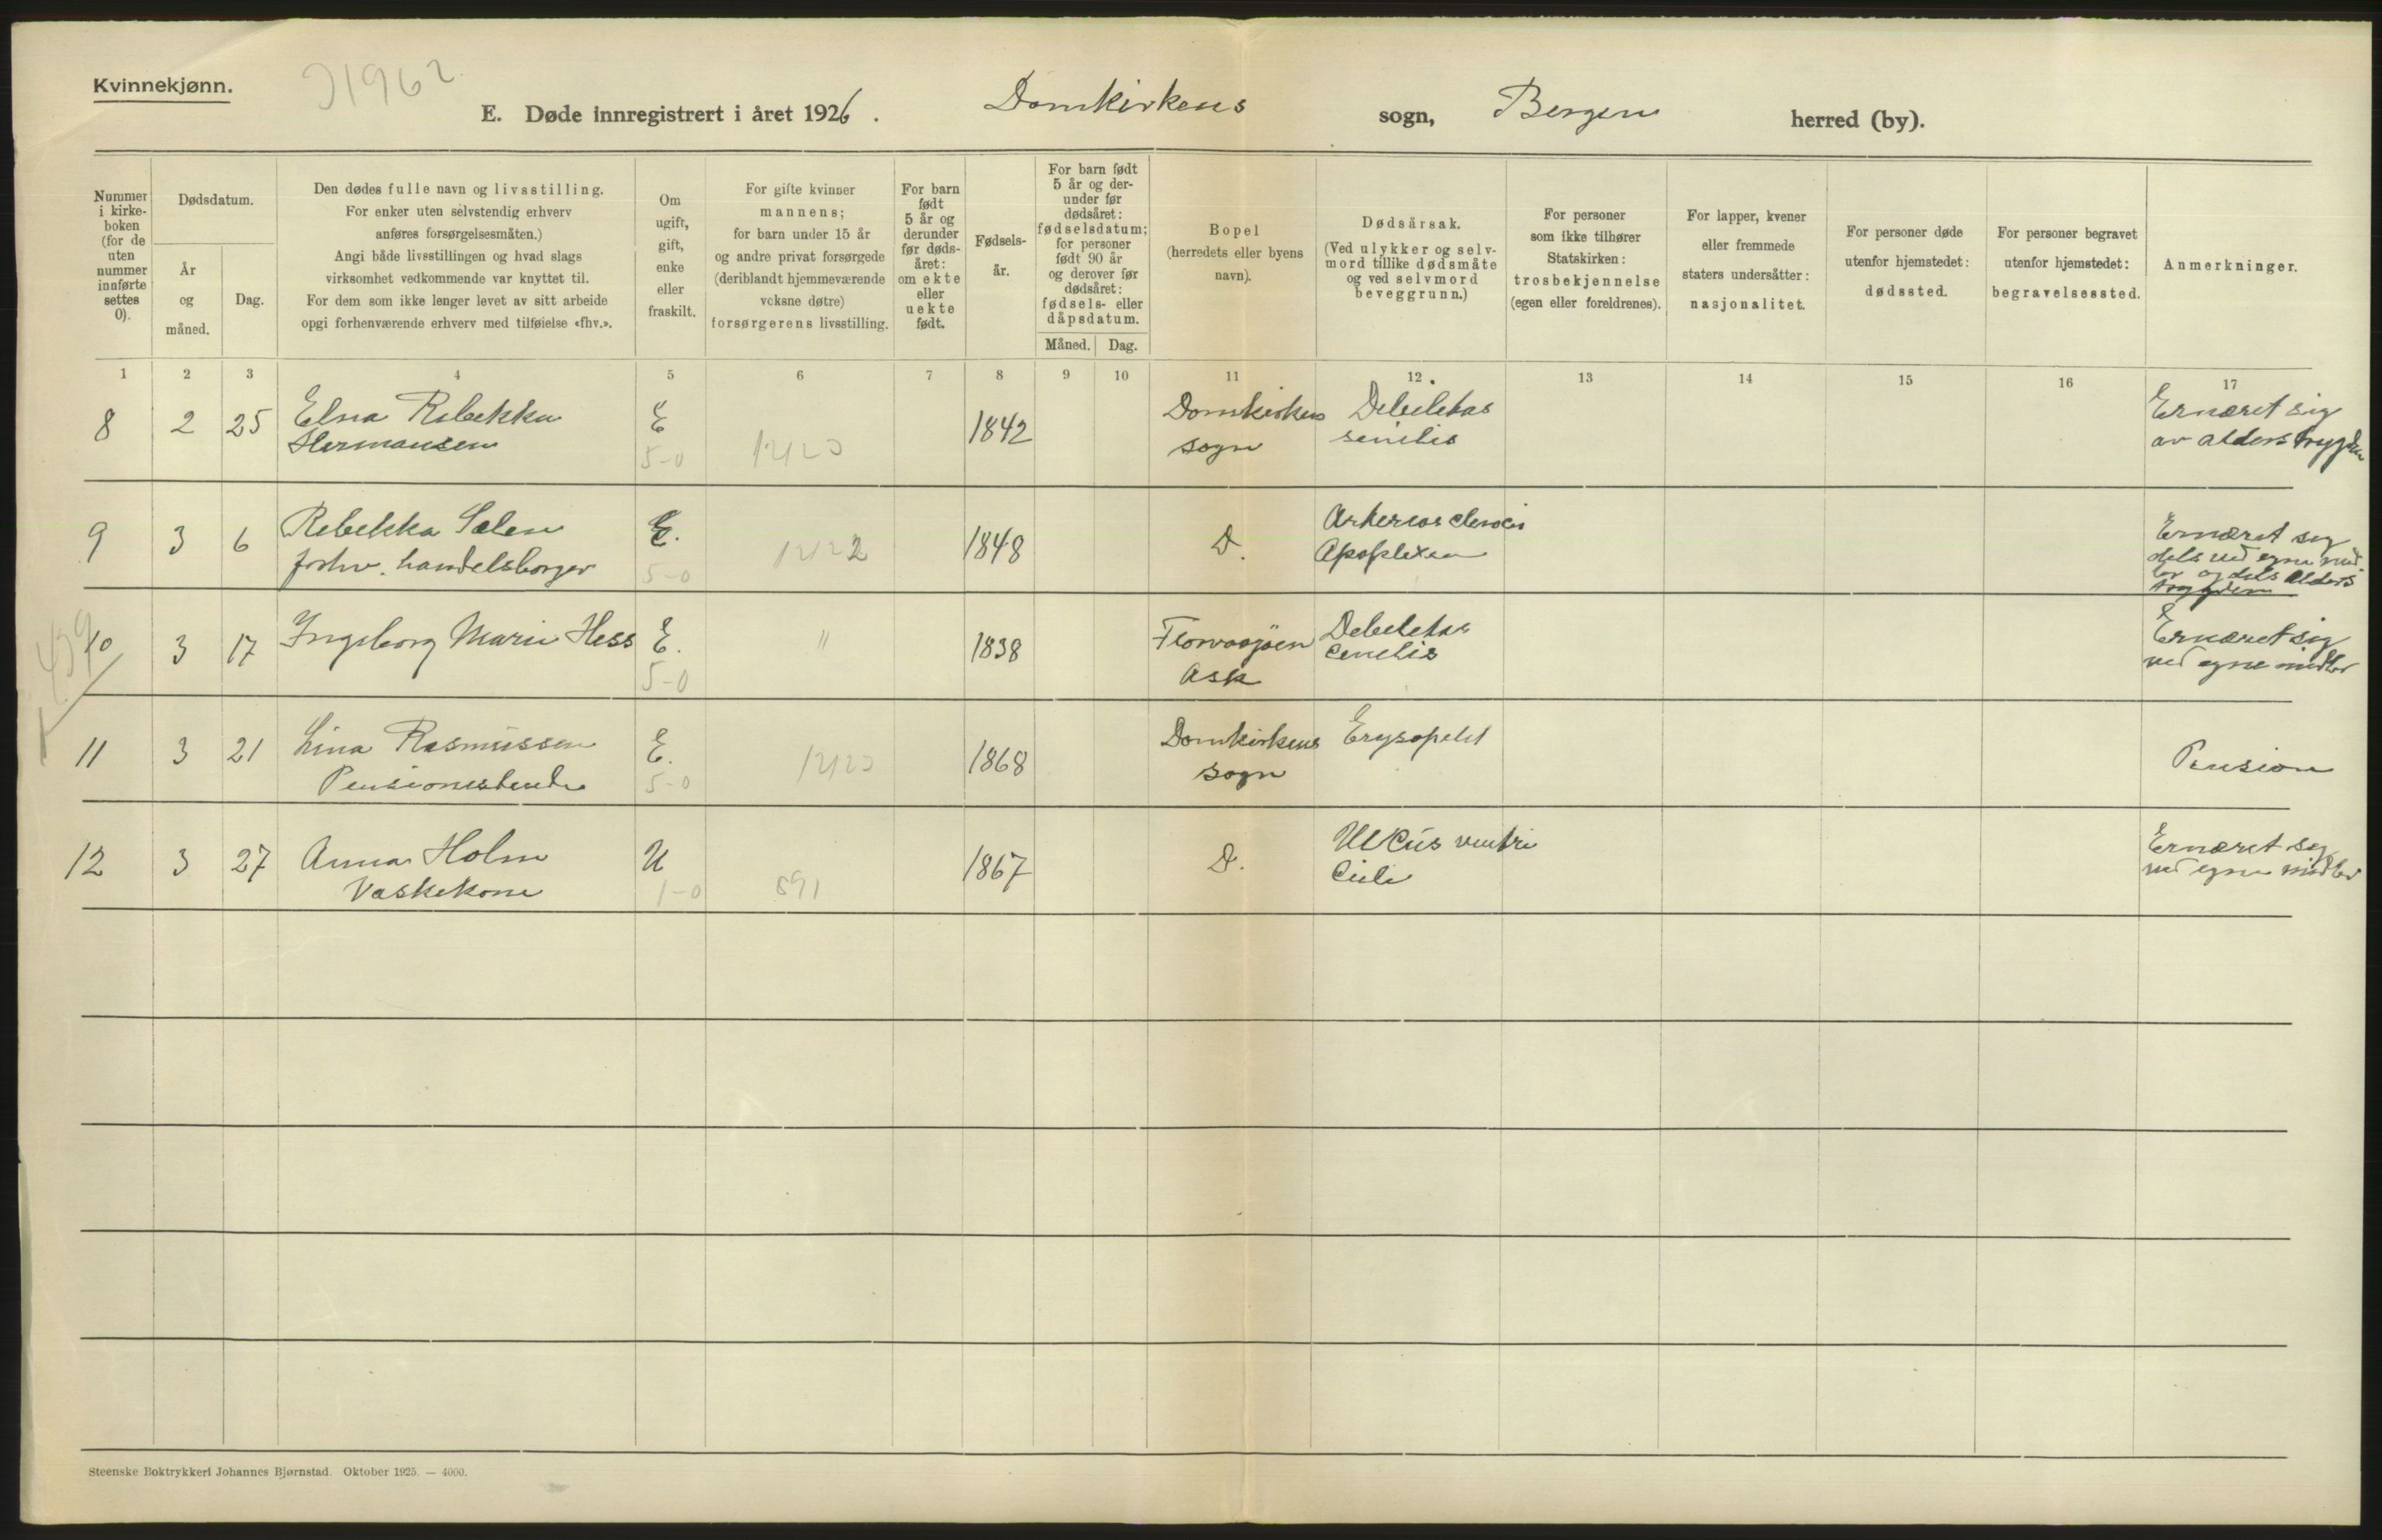 Kvinnekjønn.
E. Døde innregistrert i året 1926.
Domkirkens sogn, Bergen herred (by).
Nummer i kirke-
boken
(for de
uten
nummer
innførte
settes
0).
Dødsdatum.
År
og
måned.
Dag.
Den dødes fulle navn og livsstilling.
For enker uten selvstendig erhverv
anføres forsørgelsesmåten.)
Angi både livsstillingen og hvad slags
virksomhet vedkommende var knyttet til.
For dem som ikke lenger levet av sitt arbeide
opgi forhenværende erhverv med tilføielse «fhv.».
Om
ugift,
gift,
enke
eller
fraskilt.
For gifte kvinner
mannens;
for barn under 15 år
og andre privat forsørgede
(deriblandt hjemmeværende
voksne døtre)
forsørgerens livsstilling.
For barn
født
5 år og
derunder
før døds-
året:
om ekte
eller
uekte
født.
Fødsels-
år.
For barn født
5 år og der-
under før
dødsåret:
fødselsdatum;
for personer
født 90 år
og derover før
dødsåret:
fødsels- eller
dåpsdatum.
Måned. Dag.
Bopel
(herredets eller byens
navn).
Dødsårsak.
(Ved ulykker og selv-
mord tillike dødsmåte
og ved selvmord
beveggrunn.)
For personer
som ikke tilhører
Statskirken:
trosbekjennelse
(egen eller foreldrenes).
For lapper, kvener
eller fremmede
staters undersåtter:
nasjonalitet.
For personer døde
utenfor hjemstedet:
dødssted.
For personer begravet
utenfor hjemstedet:
begravelsessted.
Anmerkninger.
1 2 3 4 5 6 7 8 9 10 11 12 13 14 15 16 17
8 2 25 Elna Rebekka
Hermansen
E
5-0
1842
Domkirkens
sogn
Debilitas
senilis
Ernæret sig
av alderstrygden
9 3 6 Rebekka Sælen
forhv. handelsborger
E.
5-0
1848
D.
Apoplexia
Ernæret sig
dels ved egne mid
ler og dels alders
trygden
10 3 17 Ingeborg Marie Hess
E.
5-0
"
1838
Ask
Debilitas
Cenilis
Ernæret sig
ved egne midler
11 3 21 Lina Rasmussen
E.
5-0
1868
Domkirkens
sogn
Pension
12 3 27 Anna Holm
Vaskekone
U
1-0
891
1867
D.
Ulcus ventri
Culi
Ernæret sig
ved egne midler
Steenske Boktrykkeri Johannes Bjørnstad. Oktober 1925. — 4000.